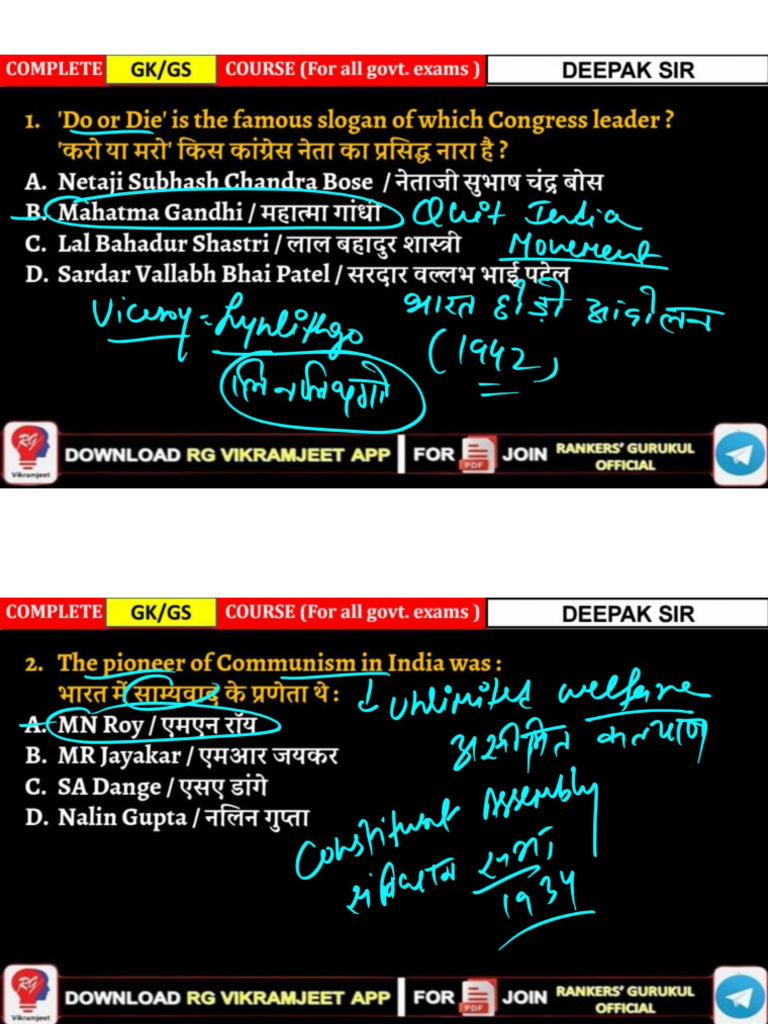 COMPLETE GK/GS COURSE (For all govt. exams ) DEEPAK SIR
1. 'Do or Die' is the famous slogan of which Congress leader ?
'करो या मरो' किस कांग्रेस नेता का प्रसिद्ध नारा है ?
A. Netaji Subhash Chandra Bose / नेताजी सुभाष चंद्र बोस
B. Mahatma Gandhi / महात्मा गांधी Quit India
C. Lal Bahadur Shastri / लाल बहादुर शास्त्री Movement
D. Sardar Vallabh Bhai Patel / सरदार वल्लभ भाई पटेल
Viceroy = Lynlithgo भारत छोड़ो आंदोलन
(1942)
लिनलिथगो
RG Vikramjeet DOWNLOAD RG VIKRAMJEET APP FOR PDF JOIN RANKERS' GURUKUL OFFICIAL
COMPLETE GK/GS COURSE (For all govt. exams ) DEEPAK SIR
2. The pioneer of Communism in India was :
भारत में साम्यवाद के प्रणेता थे : Unlimited welfare
A. MN Roy / एमएन रॉय असीमित कल्याण
B. MR Jayakar / एमआर जयकर
C. SA Dange / एसए डांगे
D. Nalin Gupta / नलिन गुप्ता
Constituent Assembly
संविधान सभा
1934
RG Vikramjeet DOWNLOAD RG VIKRAMJEET APP FOR PDF JOIN RANKERS' GURUKUL OFFICIAL